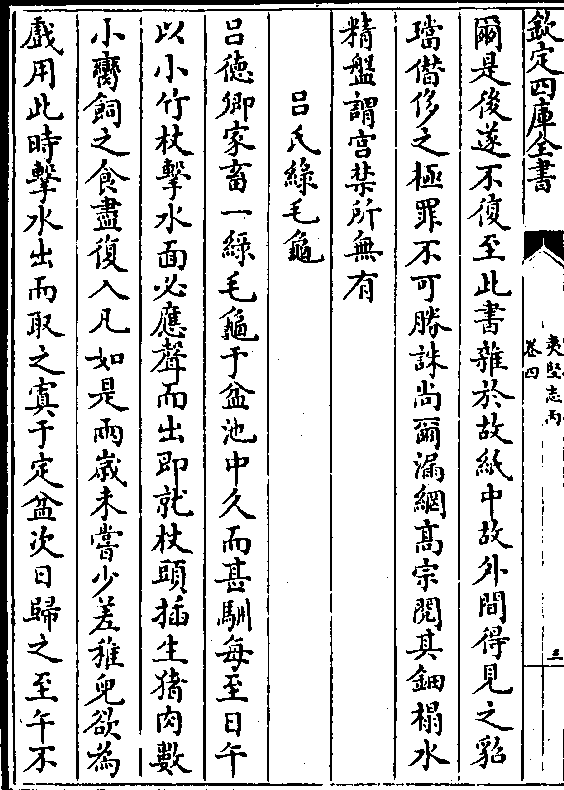 欽定四庫全書
夷堅志丙
卷四
三
爾是後遂不復至此書雜於故紙中故外間得見之貂
璫僭侈之極罪不可勝誅尚爾漏網髙宗閲其鈿榻水
精盤謂宫禁所無有
吕氏綠毛龜
吕徳卿家畜一綠毛龜于盆池中久而甚馴每至日午
以小竹杖擊水面必應聲而出即就杖頭插生猪肉數
小臠飼之食盡復入凡如是兩歲未嘗少差稚兒欲為
戲用此時擊水出而取之寘于定盆次日歸之至午不